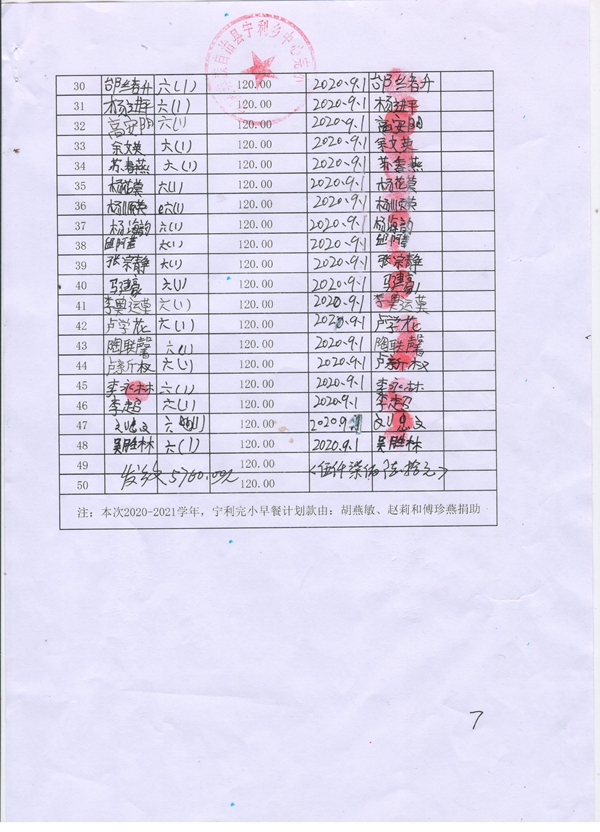 自治县宁利乡中心完小
30 六(1) 120.00 2020.9.1
31 杨进平 六(1) 120.00 2020.9.1 杨进平
32 高安阳 六(1) 120.00 2020.9.1 高安阳
33 余文英 六(1) 120.00 2020.9.1 余文英
34 苏春燕 六(1) 120.00 2020.9.1 苏春燕
35 六(1) 120.00 2020.9.1
36 六(1) 120.00 2020.9.1
37 杨海韵 六(1) 120.00 2020.9.1 杨海韵
38 六(1) 120.00 2020.9.1
39 张宗静 六(1) 120.00 2020.9.1 张宗静
40 六(1) 120.00 2020.9.1
41 李奥运莲 六(1) 120.00 2020.9.1 李奥运莲
42 卢学花 六(1) 120.00 2020.9.1 卢学花
43 陶联馨 六(1) 120.00 2020.9.1 陶联馨
44 卢新权 六(1) 120.00 2020.9.1 卢新权
45 李永林 六(1) 120.00 2020.9.1 李永林
46 李超 六(1) 120.00 2020.9.1 李超
47 六(1) 120.00 2020.9.1
48 吴胜林 六(1) 120.00 2020.9.1 吴胜林
49 120.00
5760.00元
50 120.00
注：本次2020-2021学年，宁利完小早餐计划款由：胡燕敏、赵莉和傅珍燕捐助
7